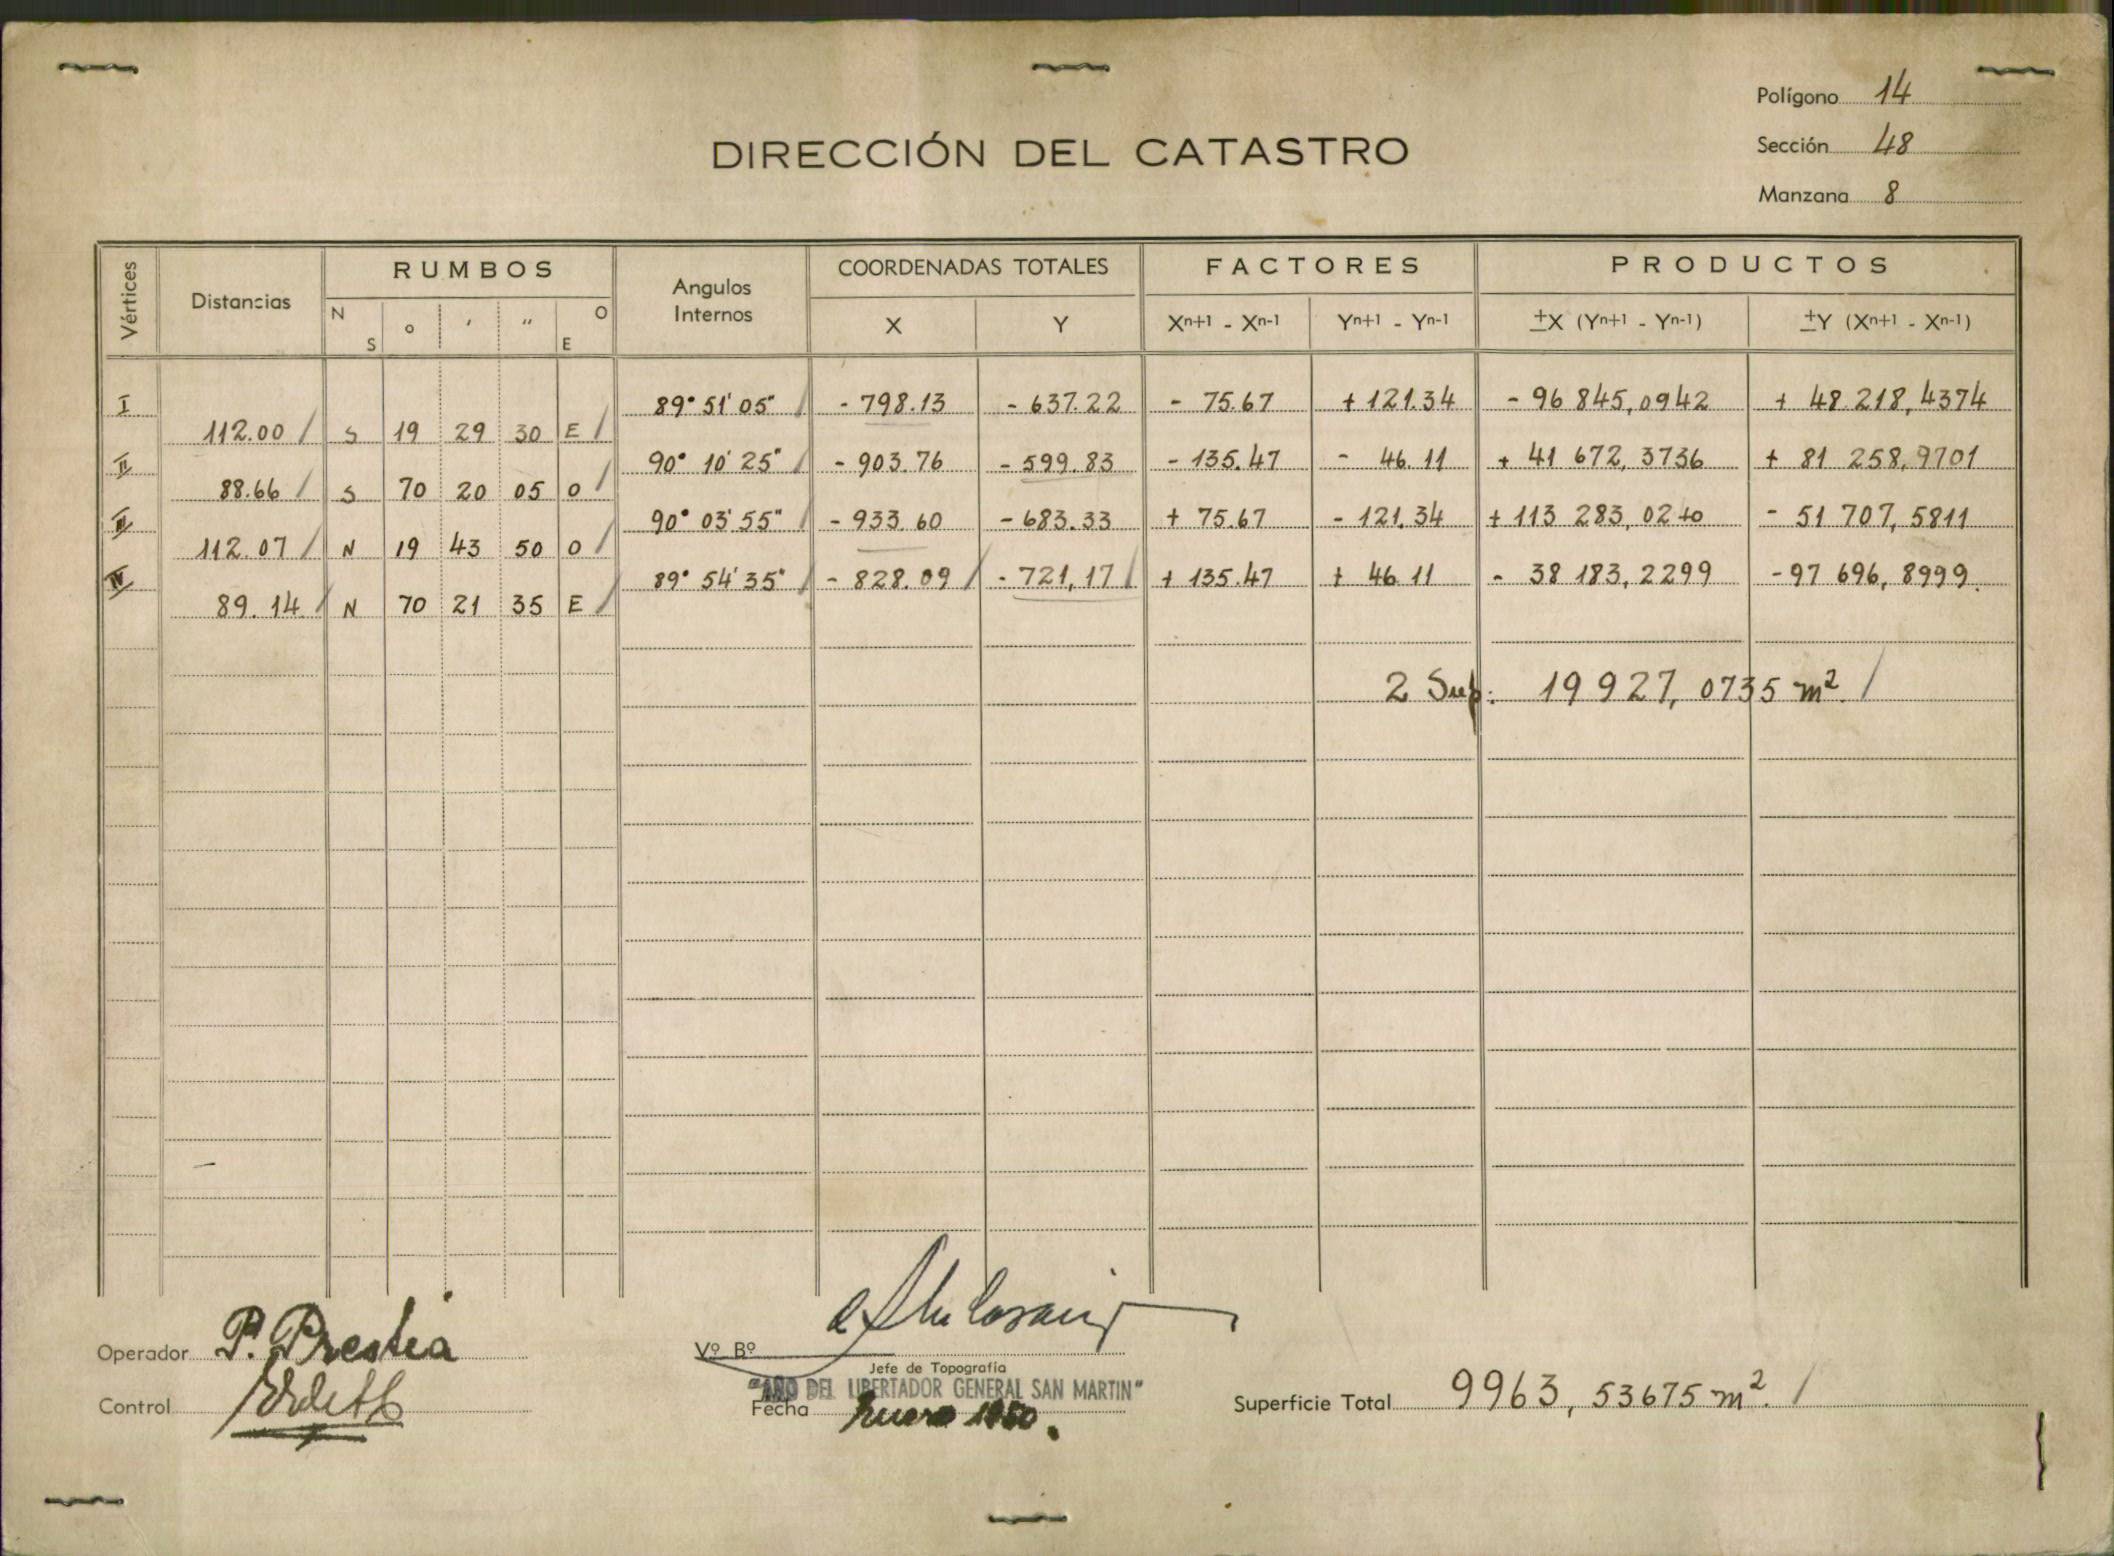 Polígono 14
DIRECCIÓN DEL CATASTRO
Sección 48
Manzana 8
Vértices
Distancias
RUMBOS
N S ° ' " O E
Angulos Internos
COORDENADAS TOTALES
X Y
FACTORES
Xn+1 - Xn-1 Yn+1 - Yn-1
PRODUCTOS
±X (Yn+1 - Yn-1) ±Y (Xn+1 - Xn-1)
I 89° 51' 05" - 798.13 - 637.22 - 75.67 + 121.34 - 96 845,0942 + 48 218,4374
112.00 S 19 29 30 E
II 90° 10' 25" - 903.76 - 599.83 - 135.47 - 46.11 + 41 672,3736 + 81 258,9701
88.66 S 70 20 05 O
III 90° 03' 55" - 933.60 - 683.33 + 75.67 - 121.34 + 113 283,0240 - 51 707,5811
112.07 N 19 43 50 O
IV 89° 54' 35" - 828.09 - 721,17 + 135.47 + 46.11 - 38 183,2299 - 97 696,8999.
89.14 N 70 21 35 E
2 Sup: 19 927,0735 m²
Operador P. Prestia
Vº Bº
Jefe de Topografía
"AÑO DEL LIBERTADOR GENERAL SAN MARTIN"
Control
Fecha Enero 1950.
Superficie Total 9963,53675 m².